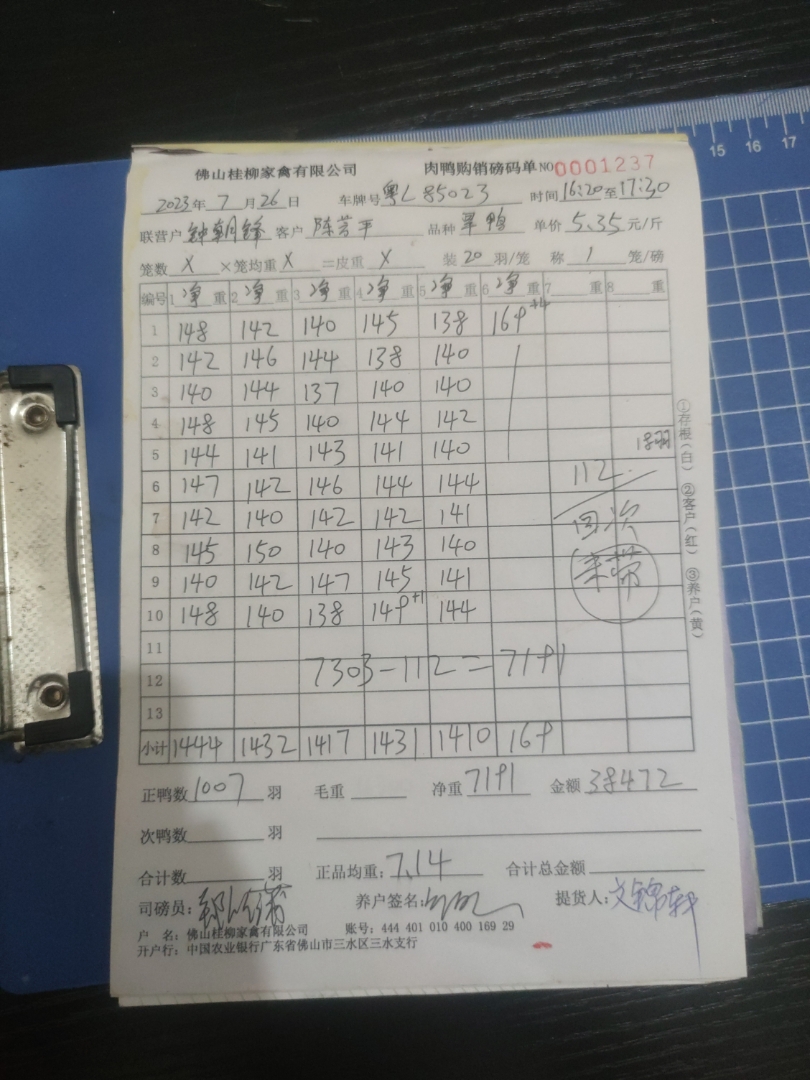 佛山桂柳家禽有限公司 肉鸭购销磅码单 NO 0001237
2023年 7 月 26 日 车牌号 粤L 85023 时间 16:20 至 17:30
联营户 钟朝锋 客户 陈芳平 品种 单鸭 单价 5.35 元/斤
笼数 X ×笼均重 X =皮重 X 装 20 羽/笼 称 1 笼/磅
编号 1 净 重 2 净 重 3 净 重 4 净 重 5 净 重 6 净 重 7 重 8 重
1 148 142 140 145 138 169 +4
2 142 146 144 138 140
3 140 144 137 140 140
4 148 145 140 144 142
5 144 141 143 141 140 18羽
6 147 142 146 144 144 112
7 142 140 142 142 141
8 145 150 140 143 140
9 140 142 147 145 141
10 148 140 138 149 +1 144
11
12 7303-112=7191
13
小计 1444 1432 1417 1431 1410 169
正鸭数 1007 羽 毛重 净重 7191 金额 38472
次鸭数 羽
合计数 羽 正品均重: 7.14 合计总金额
司磅员: 养户签名: 提货人: 文锦轩
户 名: 佛山桂柳家禽有限公司 账号: 444 401 010 400 169 29
开户行: 中国农业银行广东省佛山市三水区三水支行
①存根(白) ②客户(红) ③养户(黄)